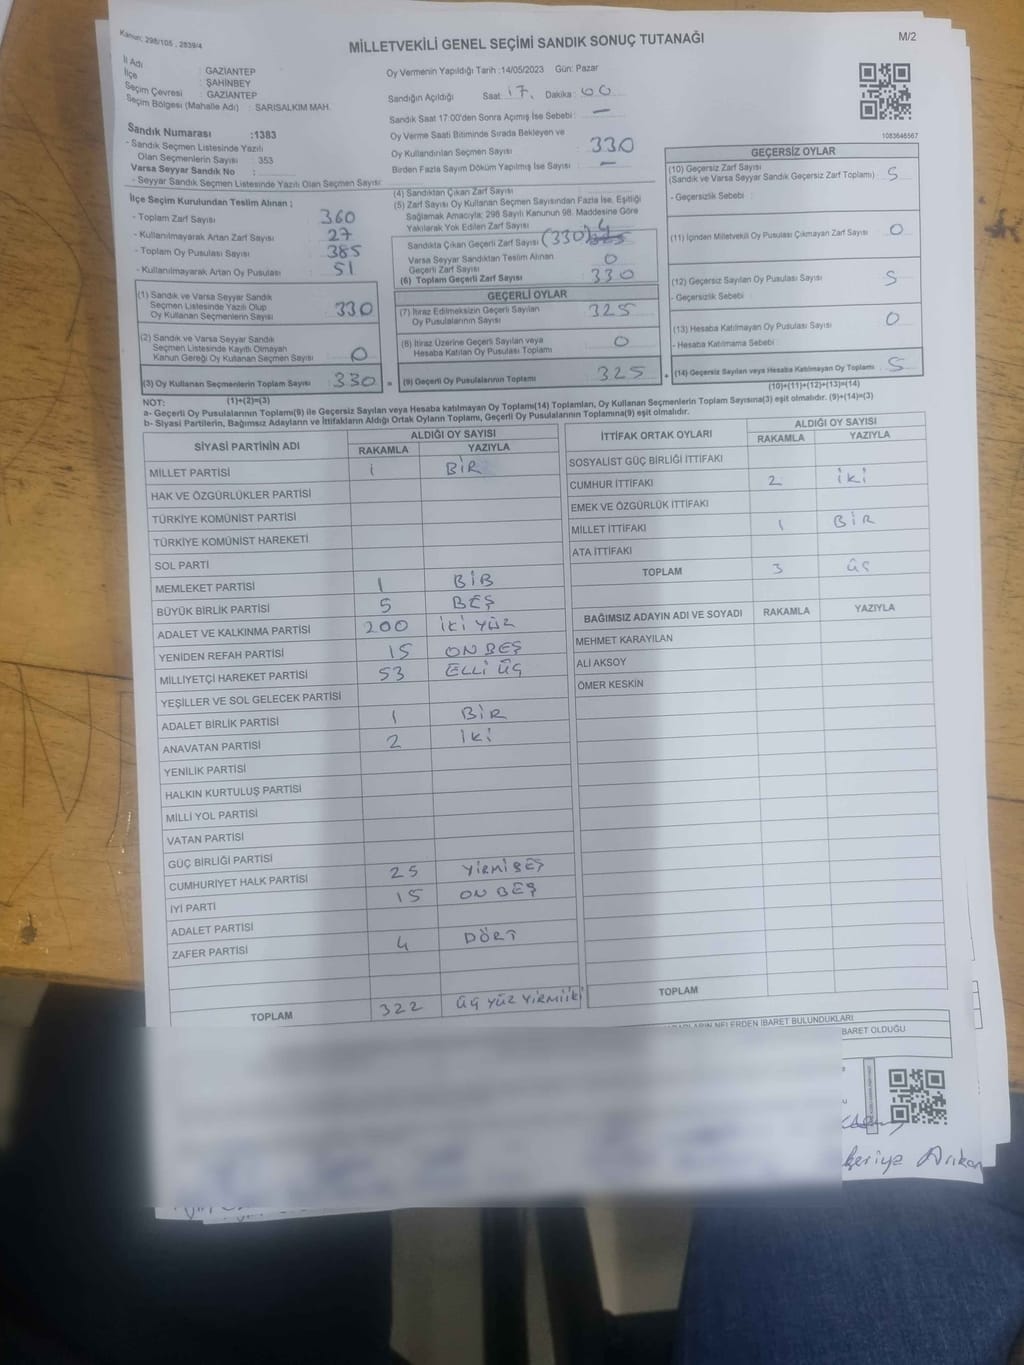 Kanun: 298/105 , 2839/4
MİLLETVEKİLİ GENEL SEÇİMİ SANDIK SONUÇ TUTANAĞI
M/2
İl Adı : GAZİANTEP
İlçe : ŞAHİNBEY
Seçim Çevresi : GAZİANTEP
Seçim Bölgesi (Mahalle Adı) : SARISALKIM MAH.
Sandık Numarası :1383
- Sandık Seçmen Listesinde Yazılı
Olan Seçmenlerin Sayısı : 353
Varsa Seyyar Sandık No :
- Seyyar Sandık Seçmen Listesinde Yazılı Olan Seçmen Sayısı:
Oy Vermenin Yapıldığı Tarih :14/05/2023 Gün: Pazar
Sandığın Açıldığı Saat: 17. Dakika: 00
Sandık Saat 17:00'den Sonra Açılmış İse Sebebi: —
Oy Verme Saati Bitiminde Sırada Bekleyen ve
Oy Kullandırılan Seçmen Sayısı : 330
Birden Fazla Sayım Döküm Yapılmış İse Sayısı : —
1083646567
İlçe Seçim Kurulundan Teslim Alınan ;
- Toplam Zarf Sayısı : 360
- Kullanılmayarak Artan Zarf Sayısı : 27
- Toplam Oy Pusulası Sayısı : 385
- Kullanılmayarak Artan Oy Pusulası : 51
(1) Sandık ve Varsa Seyyar Sandık
Seçmen Listesinde Yazılı Olup
Oy Kullanan Seçmenlerin Sayısı : 330
(2) Sandık ve Varsa Seyyar Sandık
Seçmen Listesinde Kayıtlı Olmayan
Kanun Gereği Oy Kullanan Seçmen Sayısı : 0
(3) Oy Kullanan Seçmenlerin Toplam Sayısı : 330
(1)+(2)=(3)
(4) Sandıktan Çıkan Zarf Sayısı :
(5) Zarf Sayısı Oy Kullanan Seçmen Sayısından Fazla İse, Eşitliği
Sağlamak Amacıyla; 298 Sayılı Kanunun 98. Maddesine Göre
Yakılarak Yok Edilen Zarf Sayısı :
Sandıkta Çıkan Geçerli Zarf Sayısı : (330)
Varsa Seyyar Sandıktan Teslim Alınan
Geçerli Zarf Sayısı : 0
(6) Toplam Geçerli Zarf Sayısı : 330
GEÇERLİ OYLAR
(7) İtiraz Edilmeksizin Geçerli Sayılan
Oy Pusulalarının Sayısı : 325
(8) İtiraz Üzerine Geçerli Sayılan veya
Hesaba Katılan Oy Pusulası Toplamı : 0
= (9) Geçerli Oy Pusulalarının Toplamı : 325
GEÇERSİZ OYLAR
(10) Geçersiz Zarf Sayısı
(Sandık ve Varsa Seyyar Sandık Geçersiz Zarf Toplamı) : 5
- Geçersizlik Sebebi :
(11) İçinden Milletvekili Oy Pusulası Çıkmayan Zarf Sayısı : 0
(12) Geçersiz Sayılan Oy Pusulası Sayısı : 5
- Geçersizlik Sebebi :
(13) Hesaba Katılmayan Oy Pusulası Sayısı : 0
- Hesaba Katılmama Sebebi :
+ (14) Geçersiz Sayılan veya Hesaba Katılmayan Oy Toplamı : 5
(10)+(11)+(12)+(13)=(14)
NOT:
a- Geçerli Oy Pusulalarının Toplamı(9) ile Geçersiz Sayılan veya Hesaba katılmayan Oy Toplamı(14) Toplamları, Oy Kullanan Seçmenlerin Toplam Sayısına(3) eşit olmalıdır. (9)+(14)=(3)
b- Siyasi Partilerin, Bağımsız Adayların ve İttifakların Aldığı Ortak Oyların Toplamı, Geçerli Oy Pusulalarının Toplamına(9) eşit olmalıdır.
SİYASİ PARTİNİN ADI ALDIĞI OY SAYISI
RAKAMLA YAZIYLA
MİLLET PARTİSİ 1 BİR
HAK VE ÖZGÜRLÜKLER PARTİSİ
TÜRKİYE KOMÜNİST PARTİSİ
TÜRKİYE KOMÜNİST HAREKETİ
SOL PARTİ
MEMLEKET PARTİSİ 1 BİR
BÜYÜK BİRLİK PARTİSİ 5 BEŞ
ADALET VE KALKINMA PARTİSİ 200 İKİ YÜZ
YENİDEN REFAH PARTİSİ 15 ON BEŞ
MİLLİYETÇİ HAREKET PARTİSİ 53 ELLİ ÜÇ
YEŞİLLER VE SOL GELECEK PARTİSİ
ADALET BİRLİK PARTİSİ 1 BİR
ANAVATAN PARTİSİ 2 İKİ
YENİLİK PARTİSİ
HALKIN KURTULUŞ PARTİSİ
MİLLİ YOL PARTİSİ
VATAN PARTİSİ
GÜÇ BİRLİĞİ PARTİSİ
CUMHURİYET HALK PARTİSİ 25 YİRMİ BEŞ
İYİ PARTİ 15 ON BEŞ
ADALET PARTİSİ
ZAFER PARTİSİ 4 DÖRT
TOPLAM 322 ÜÇ YÜZ YİRMİ İKİ
İTTİFAK ORTAK OYLARI ALDIĞI OY SAYISI
RAKAMLA YAZIYLA
SOSYALİST GÜÇ BİRLİĞİ İTTİFAKI
CUMHUR İTTİFAKI 2 İKİ
EMEK VE ÖZGÜRLÜK İTTİFAKI
MİLLET İTTİFAKI 1 BİR
ATA İTTİFAKI
TOPLAM 3 ÜÇ
BAĞIMSIZ ADAYIN ADI VE SOYADI RAKAMLA YAZIYLA
MEHMET KARAYILAN
ALİ AKSOY
ÖMER KESKİN
TOPLAM
NELERDEN İBARET BULUNDUKLARI
BARET OLDUĞU